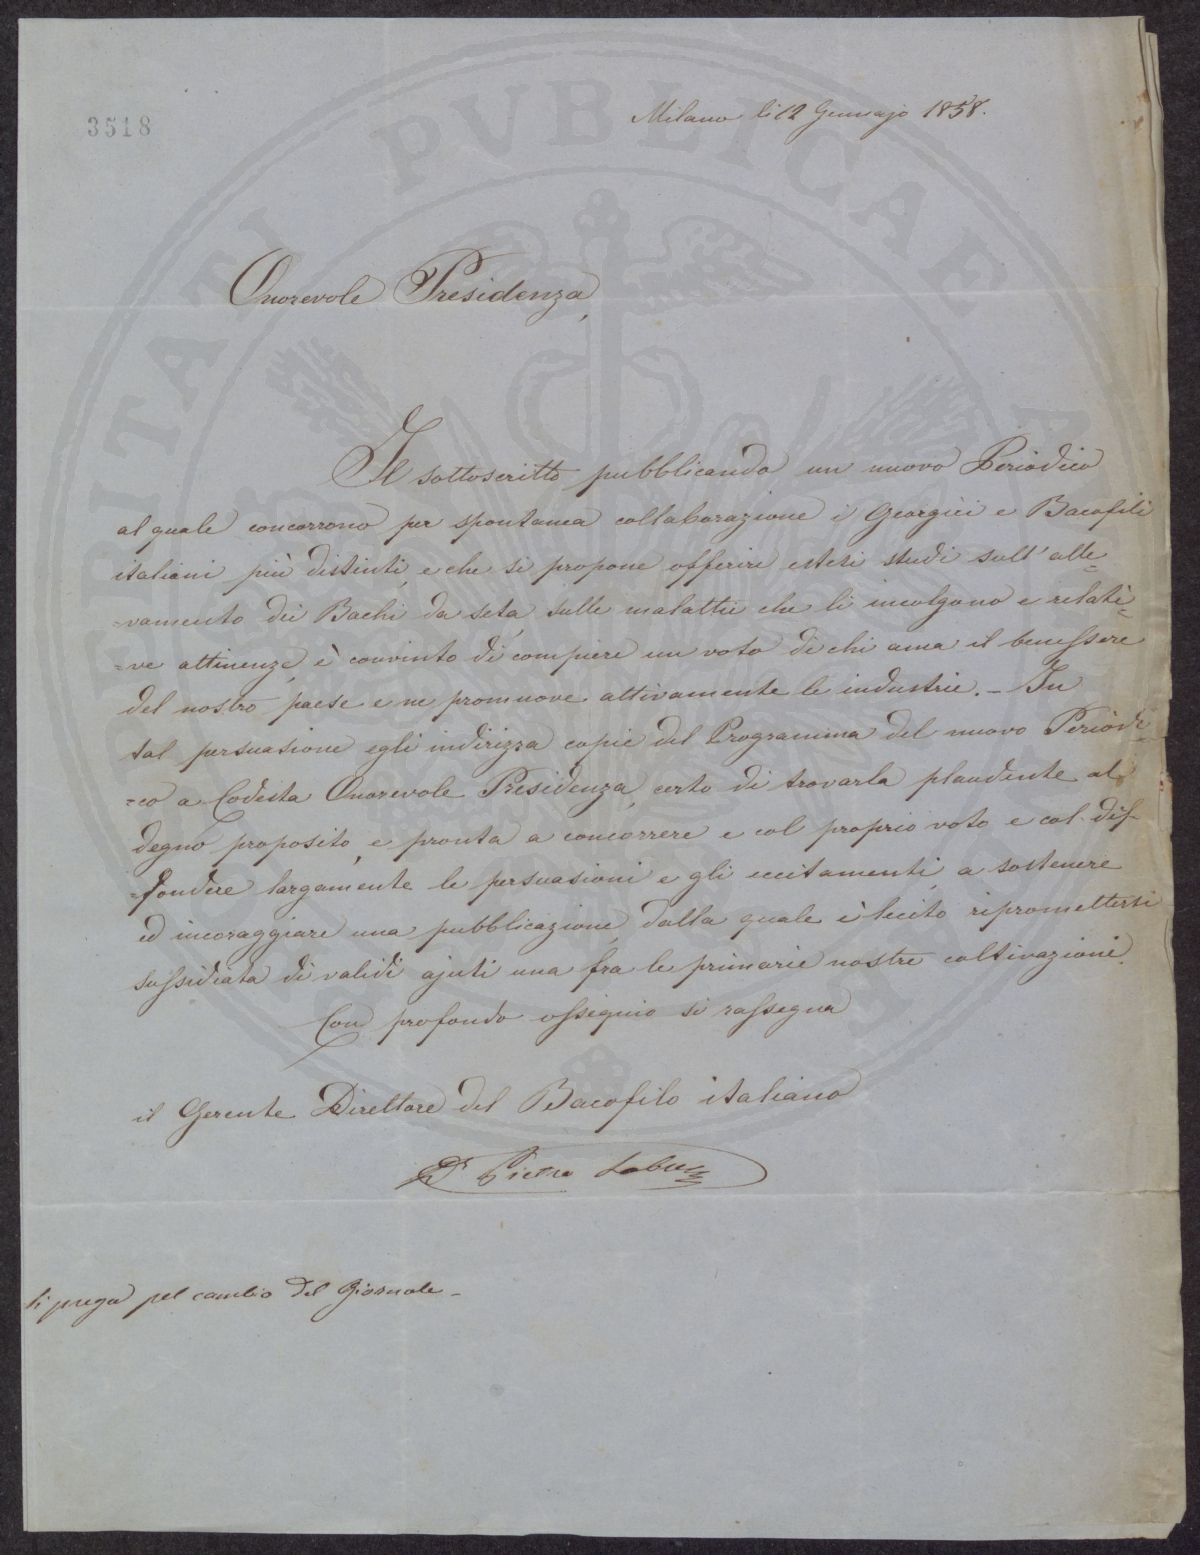 3518
Milano li 12 Gennajo 1858.
Onorevole Presidenza,
Il sottoscritto pubblicando un nuovo Periodico
al quale concorrono per spontanea collaborazione i Georgici e Bacofili
italiani più distinti, e che si propone offerire estesi studi sull'alle-
-vamento dei Bachi da seta, sulle malattie che li incolgono e relati-
-ve attinenze, è convinto di compiere un voto di chi ama il benessere
del nostro paese e ne promuove attivamente le industrie. - In
tal persuasione egli indirizza copie del Programma del nuovo Periodi-
-co a Codesta Onorevole Presidenza, certo di trovarla plaudente al
degno proposito, e pronta a concorrere e col proprio voto e col dif-
-fondere largamente le persuasioni e gli eccitamenti, a sostenere
ed incoraggiare una pubblicazione, dalla quale è lecito ripromettersi
sussidiata di validi ajuti una fra le primarie nostre coltivazioni.
Con profondo ossequio si rassegna
il Gerente Direttore del Bacofilo italiano
Dr Pietro
Si prega pel cambio del Giornale -
PVBLICAE